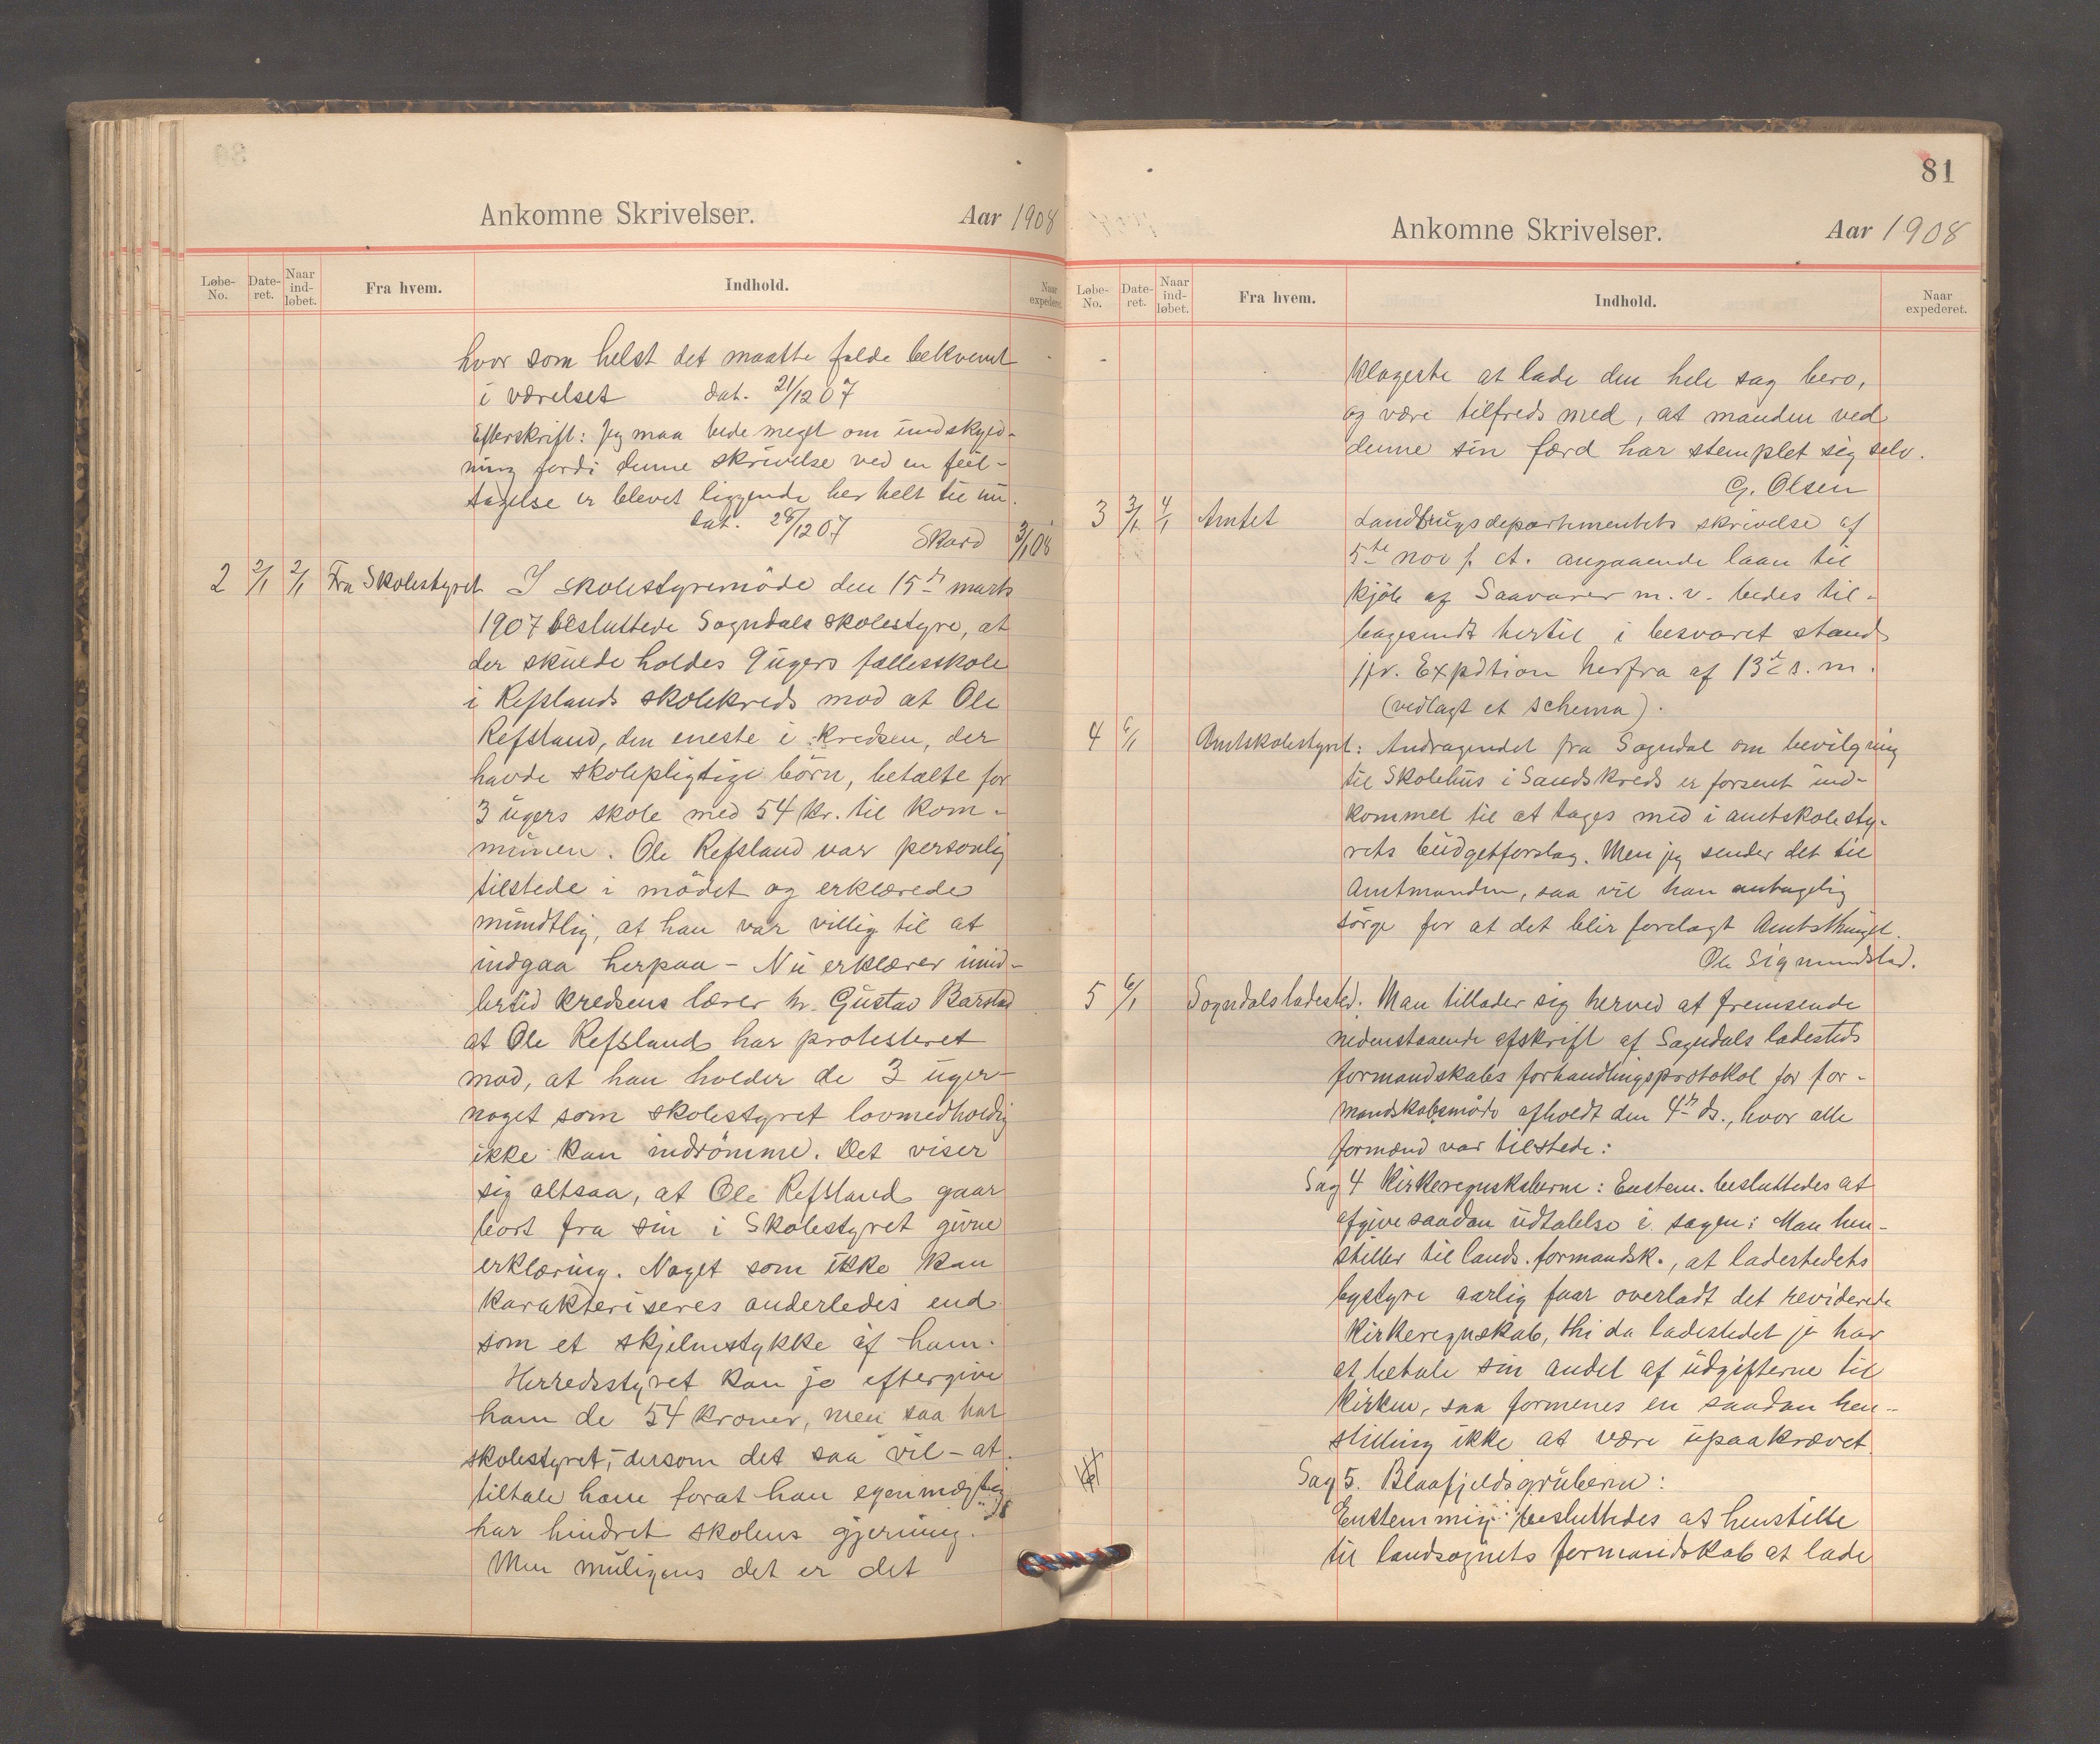 Ankomne Skrivelser. Aar 1908
Løbe-No. Date-ret. Naar ind-løbet. Fra hvem. Indhold. Naar expederet.
hvor som helst det maatte falde bekvemt
i værelset dat. 21/12 07
Efterskrift: Jeg maa bede meget om undskyld-
ning fordi denne skrivelse ved en feil-
tagelse er blevet liggende her helt til nu.
Dat. 28/12 07 Skard 3/1 08
2 2/1 2/1 Fra Skolestyret I skolestyremöde den 15de marts
1907 besluttede Sogndals skolestyre, at
der skulde holdes 9 ugers fællesskole
i Refslands skolekreds mod at Ole
Refsland, den eneste i kredsen, der
havde skolepligtige börn, betalte for
3 ugers skole med 54 kr. til kom-
munen. Ole Refsland var personlig
tilstede i mödet og erklærede
mundtlig, at han var villig til at
indgaa herpaa - Nu erklærer imid-
lertid kredsens lærer hr. Gustav Barstad
at Ole Refsland har protesteret
mod, at han holder de 3 uger -
noget som skolestyret lovmedholdig
ikke kan indrömme. Det viser
sig altsaa, at Ole Refsland gaar
bort fra sin i Skolestyret givne
erklæring. Noget som ikke kan
karakteriseres anderledes end
som et skjelmstykke af ham.
Herredsstyret kan jo eftergive
ham de 54 kroner, men saa har
skolestyret, - dersom det saa vil - at
tiltale ham forat han egenmægtig
har hindret skolens gjerning.
Men muligens det er det
81
Ankomne Skrivelser. Aar 1908
Løbe-No. Date-ret. Naar ind-løbet. Fra hvem. Indhold. Naar expederet.
klogeste at lade den hele sag bero,
og være tilfreds med, at manden ved
denne sin færd har stemplet sig selv.
G. Olsen
3 3/1 4/1 Amtet Landbrugsdepartementets skrivelse af
5te nov f. A. angaaende laan til
kjöb af Saavarer m. v. bedes til-
bagesendt hertil i besvaret stand
jfr. Expdtion herfra af 13de s. m.
(vedlagt et schema).
4 6/1 Amtskolestyret: Andragendet fra Sogndal om bevilgning
til Skolehus i Sands kreds er forsent ind-
kommet til at tages med i amtskolesty-
rets budgetforslag. Men jeg sender det til
Amtmanden, saa vil han antagelig
sörge for at det blir forelagt Amtsthinget.
Ole Sigmundstad.
5 6/1 Sogndals ladested. Man tillader sig herved at fremsende
nedenstaaende afskrift af Sogndals ladesteds
formandskabs forhandlingsprotokol for for-
mandskabsmöde afholdt den 4de ds., hvor alle
formænd var tilstede:
Sag 4 Kirkeregnskaberne: Enstem. besluttedes at
afgive saadan udtalelse i sagen: Man hen-
stiller til lands. formandsk., at ladestedets
bystyre aarlig faar overladt det reviderede
kirkeregnskab, thi da ladestedet jo har
at betale sin andel af udgifterne til
kirken, saa formenes en saadan hen-
stilling ikke at være upaakrævet
Sag 5. Blaafjeldsgruberne:
Enstemmig besluttedes at henstille
til landsognets formandskab at lade